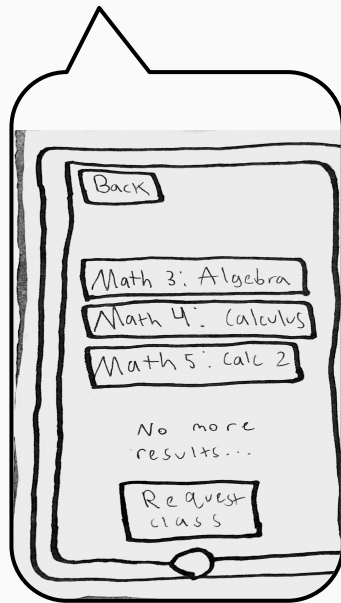 Back
Math 3: Algebra
Math 4: Calculus
Math 5: Calc 2
No more
results...
Request
class